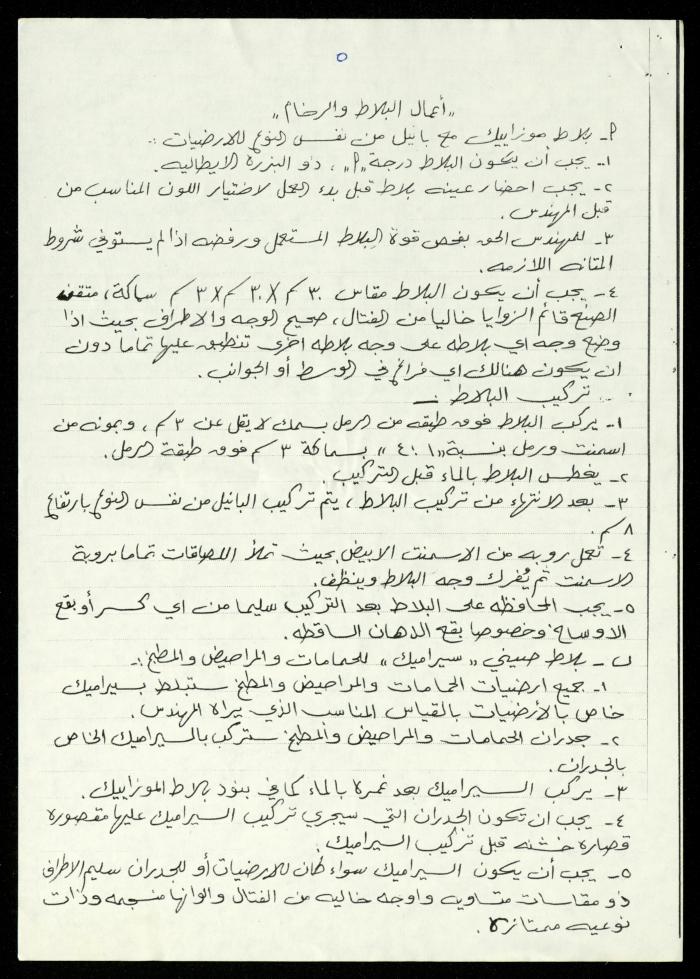 ٥
"أعمال البلاط والرخام"
أ- بلاط موزاييك مع بانيل من نفس النوع للارضيات :-
١- يجب أن يكون البلاط درجة "أ" ، ذو البزرة الايطاليه.
٢- يجب احضار عينه بلاط قبل بدء العمل لاختيار اللون المناسب من
قبل المهندس.
٣- للمهندس الحق بفحص قوة البلاط المستعمل ورفضه اذا لم يستوفي شروط
المتانه اللازمه.
٤- يجب أن يكون البلاط مقاس ٣٠سم X ٣٠سم X ٣سم سماكة، متقن
الصنع قائم الزوايا خاليا من الفتال، صحيح الوجه والاطراف بحيث اذا
وضع وجه اي بلاطه على وجه بلاطه اخرى تنطبق عليها تماما دون
ان يكون هنالك اي فراغ في الوسط أو الجوانب.
تركيب البلاط :-
١- يركب البلاط فوق طبقه من الرمل بسمك لا يقل عن ٣سم ، وبمونه من
اسمنت ورمل بنسبة "٤:١" بسماكة ٣سم فوق طبقة الرمل.
٢- يغطس البلاط بالماء قبل التركيب.
٣- بعد الانتهاء من تركيب البلاط ، يتم تركيب البانيل من نفس النوع بارتفاع
٨سم.
٤- تعمل روبه من الاسمنت الابيض بحيث تملأ اللصاقات تماما بروبة
الاسمنت ثم يُفرك وجه البلاط وينظف.
٥- يجب المحافظه على البلاط بعد التركيب سليما من اي كسر أو بقع
الاوساخ وخصوصا بقع الدهان الساقطه.
ب- بلاط صيني "سيراميك" للحمامات والمراحيض والمطبخ :-
١- جميع ارضيات الحمامات والمراحيض والمطبخ ستبلط بسيراميك
خاص بالأرضيات بالقياس المناسب الذي يراه المهندس.
٢- جدران الحمامات والمراحيض والمطبخ ستركب بالسيراميك الخاص
بالجدران.
٣- يركب السيراميك بعد غمرة بالماء كما في بنود بلاط الموزاييك.
٤- يجب ان تكون الجدران التي سيجري تركيب السيراميك عليها مقصورة
قصاره خشنه قبل تركيب السيراميك.
٥- يجب أن يكون السيراميك سواء كان للارضيات أو للجدران سليم الاطراف
ذو مقاسات متساويه واوجه خاليه من الفتال والوانها منسجمه وذات
نوعيه ممتازة.